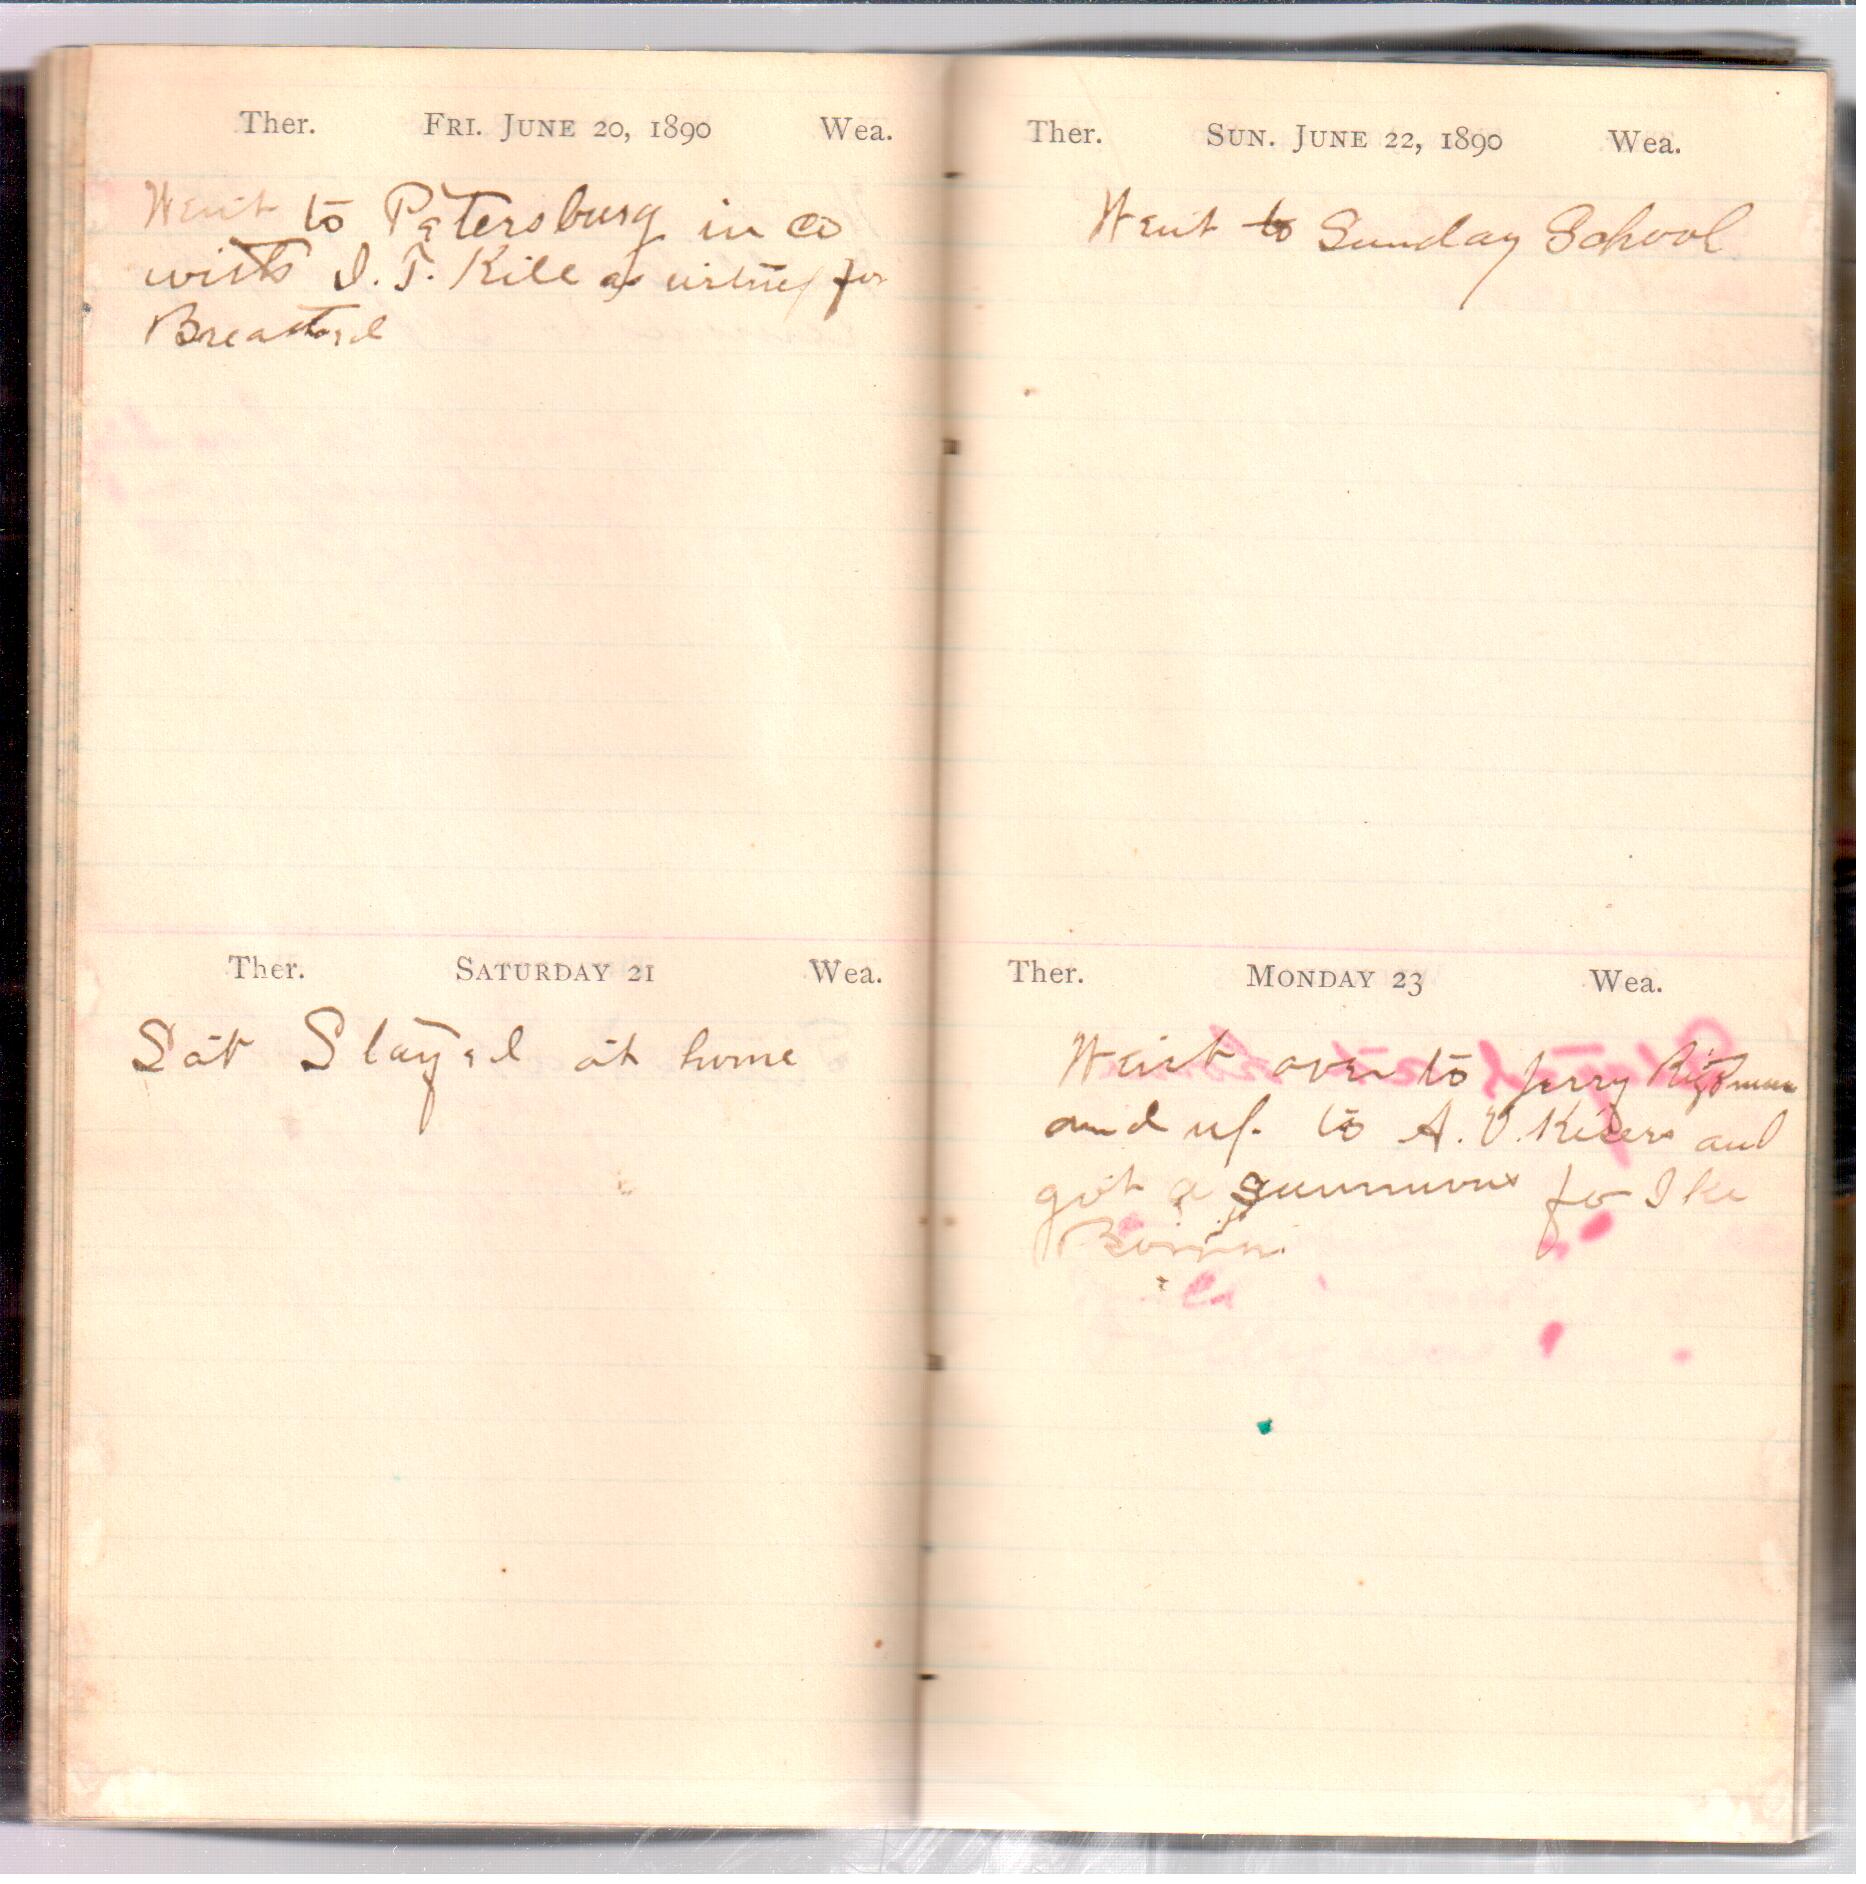 Ther. FRI. JUNE 20, 1890 Wea.
Went to Petersburg in co
with I. T. Kile as witness for
Ther. SATURDAY 21 Wea.
Sat Stayed at home
Ther. SUN. JUNE 22, 1890 Wea.
Went to Sunday School
Ther. MONDAY 23 Wea.
Went over to Jerry
and up to A. V. Kisers and
got a summons for Ike